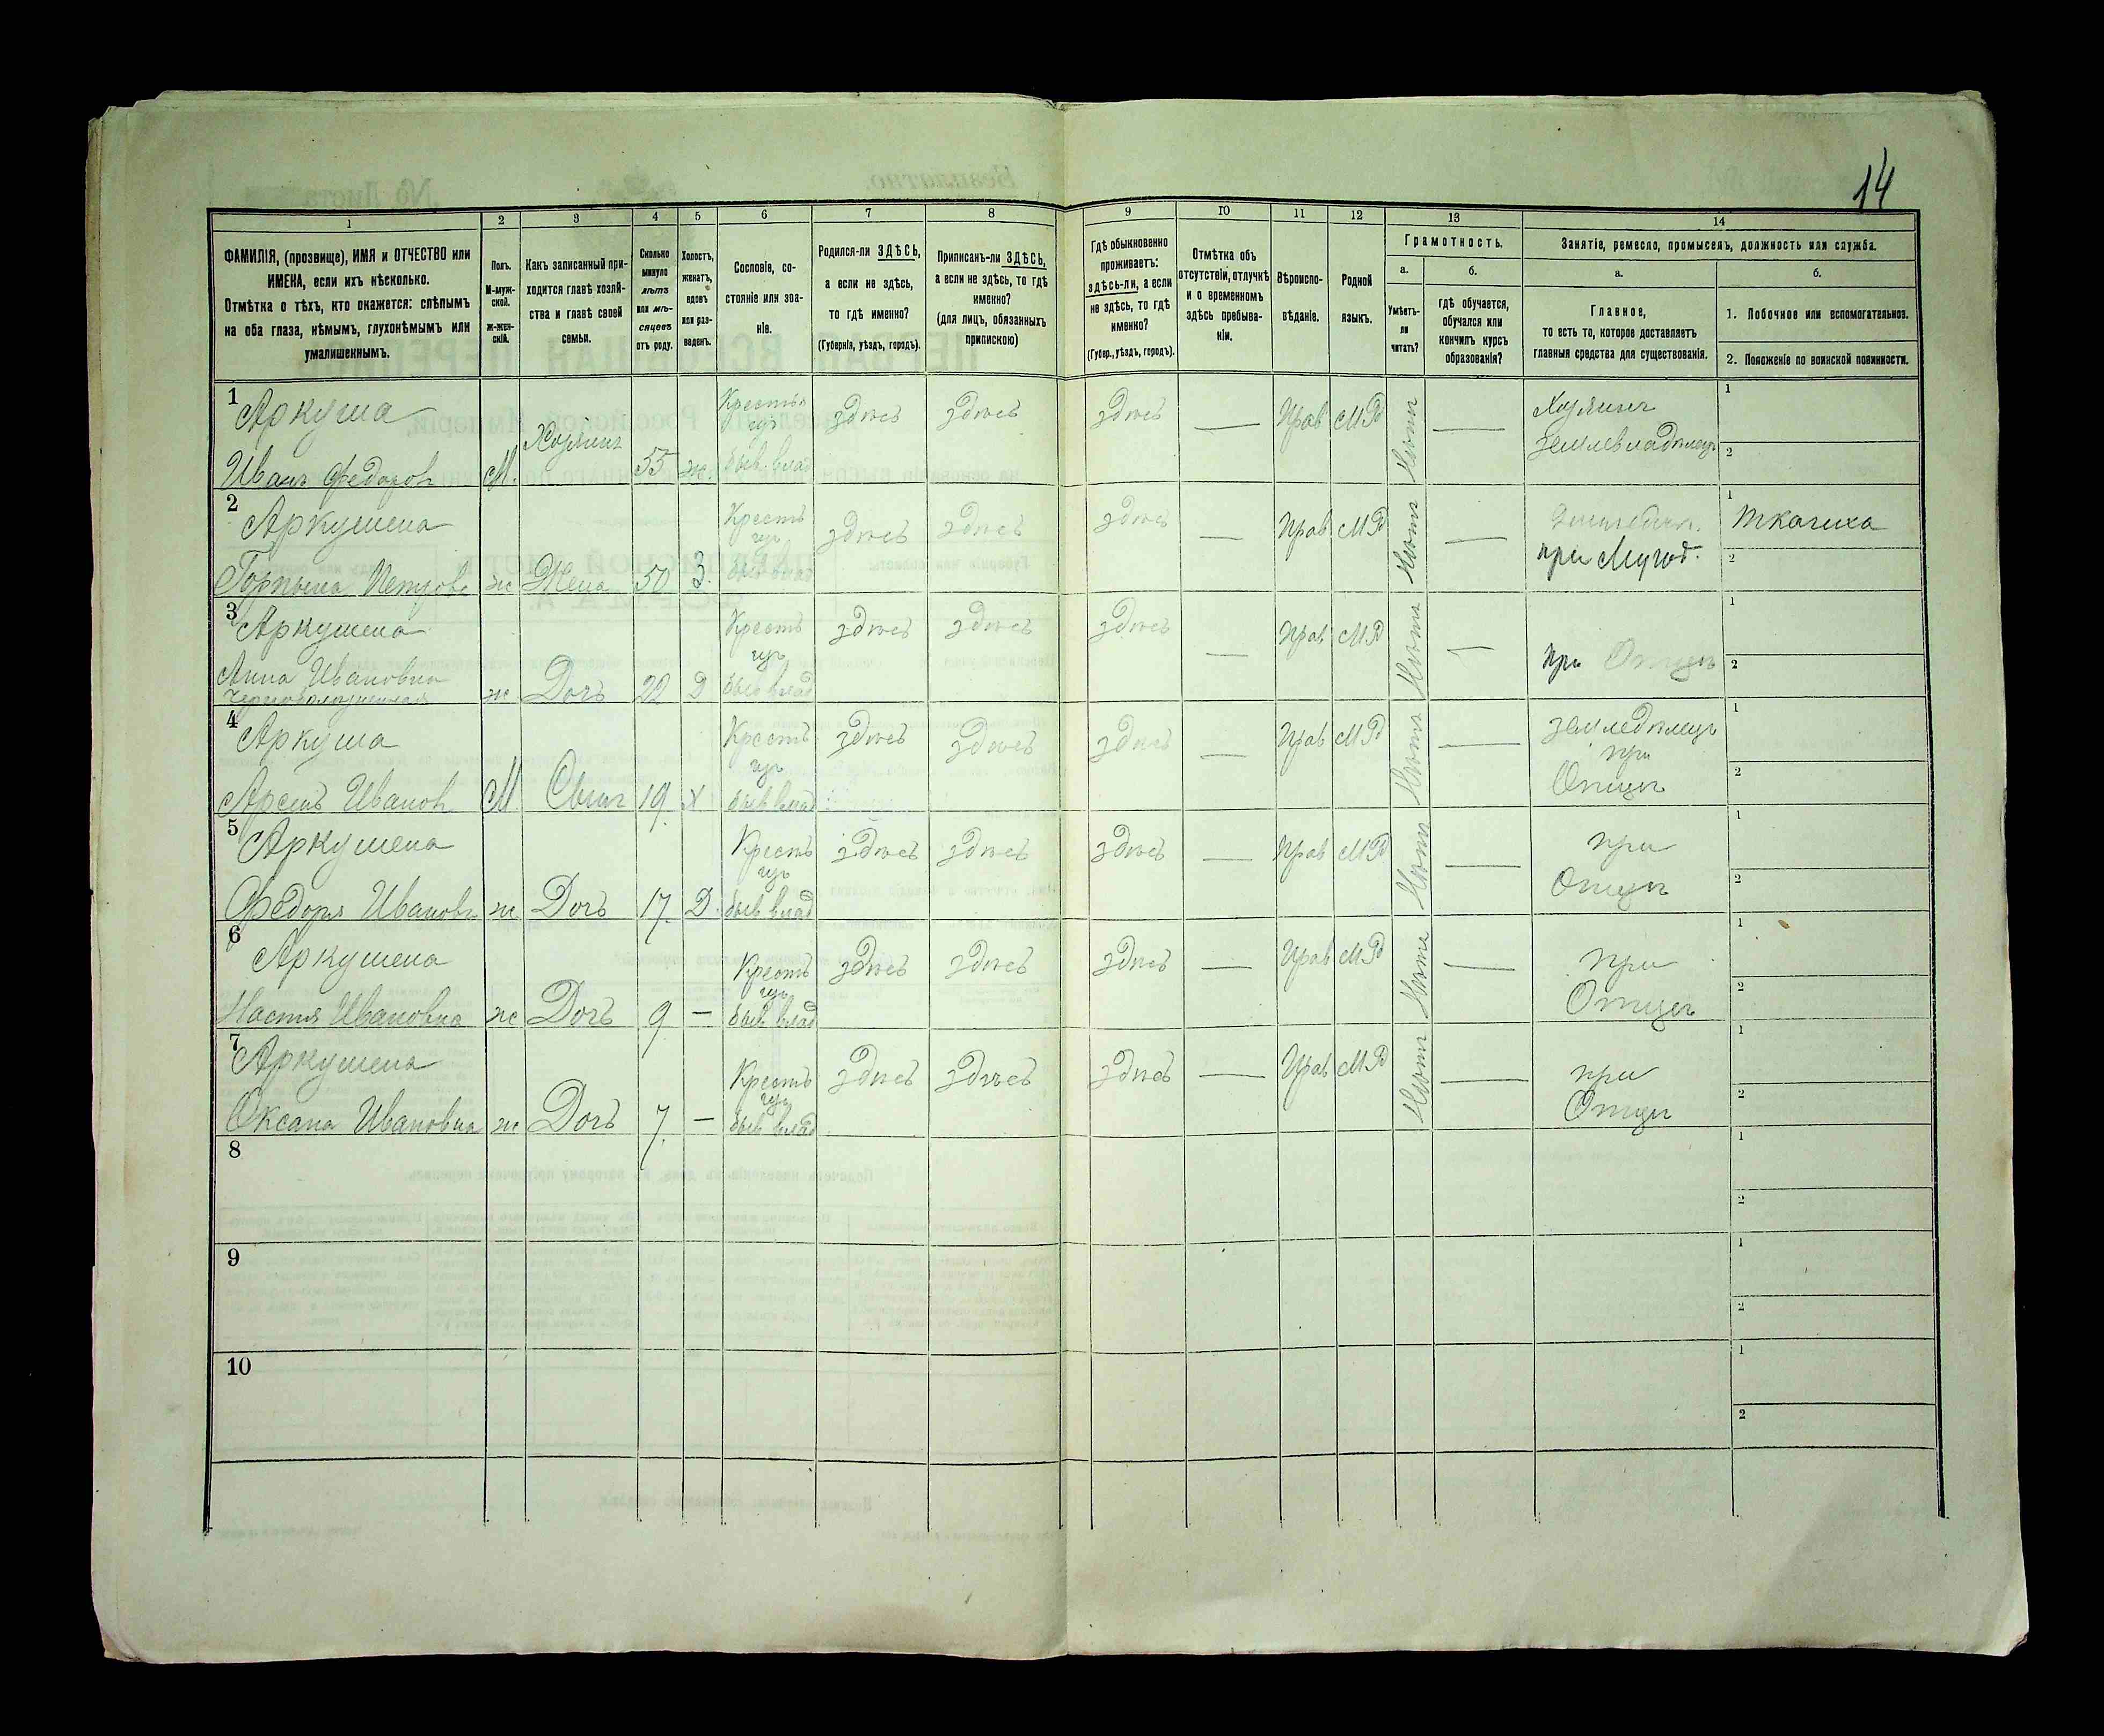 14
1
2
3
4
5
6
7
8
9
10
11
12
13
14
ФАМИЛІЯ, (прозвище), ИМЯ и ОТЧЕСТВО или
ИМЕНА, если ихъ нѣсколько.
Отмѣтка о тѣхъ, кто окажется: слѣпымъ
на оба глаза, нѣмымъ, глухонѣмымъ или
умалишеннымъ.
Полъ.
М-муж-
ской.
ж-жен-
скій.
Какъ записанный при-
ходится главѣ хозяй-
ства и главѣ своей
семьи.
Сколько
минуло
лѣтъ
или мѣ-
сяцевъ
отъ роду.
Холостъ,
женатъ,
вдовъ
или раз-
веденъ.
Сословіе, со-
стояніе или зва-
ніе.
Родился-ли ЗДѢСЬ,
а если не здѣсь,
то гдѣ именно?
(Губернія, уѣздъ, городъ).
Приписанъ-ли ЗДѢСЬ,
а если не здѣсь, то гдѣ
именно?
(для лицъ, обязанныхъ
припискою)
Гдѣ обыкновенно
проживаетъ:
здѣсь-ли, а если
не здѣсь, то гдѣ
именно?
(Губер., уѣздъ, городъ).
Отмѣтка объ
отсутствіи, отлучкѣ
и о временномъ
здѣсь пребыва-
ніи.
Вѣроиспо-
вѣданіе.
Родной
языкъ.
Грамотность.
а.
б.
Умѣетъ-
ли
читать?
гдѣ обучается,
обучался или
кончилъ курсъ
образованія?
Занятіе, ремесло, промыселъ, должность или служба.
а.
б.
Главное,
то есть то, которое доставляетъ
главныя средства для существованія.
1. Побочное или вспомогательное.
2. Положеніе по воинской повинности.
1 Аркуша
Иванъ Федоровъ М. Хозяинъ 55 ж. Крестья
нъ
быв. влад здѣсь здѣсь здѣсь — Прав МР Нѣтъ — Хозяинъ
землевладѣлецъ 1
2
2 Аркушена
Горпына Петровн ж Жена 50 З. Крестъ
нъ
быв влад здѣсь здѣсь здѣсь — Прав МР Нѣтъ —
при Мужѣ. 1 Ткачиха
2
3 Аркушена
Анна Ивановна
ж Дочь 22 Д Крестъ
нъ
быв влад здѣсь здѣсь здѣсь — Прав МР Нѣтъ — при Отцѣ 1
2
4 Аркуша
Арсенъ Ивановъ М Сынъ 19 Х Крестъ
нъ
быв влад здѣсь здѣсь здѣсь — Прав МР Нѣтъ — земледѣлецъ
при
Отцѣ 1
2
5 Аркушена
Федора Ивановн ж Дочь 17. Д. Крестъ
нъ
быв влад здѣсь здѣсь здѣсь — Прав МР Нѣтъ — при
Отцѣ 1
2
6 Аркушена
Настя Ивановна ж Дочь 9 — Крестъ
нъ
быв влад здѣсь здѣсь здѣсь — Прав МР Нѣтъ — при
Отцѣ 1
2
7 Аркушена
Оксана Ивановна ж Дочь 7. — Крестъ
нъ
быв влад здѣсь здѣсь здѣсь — Прав МР Нѣтъ — при
Отцѣ 1
2
8 1
2
9 1
2
10 1
2